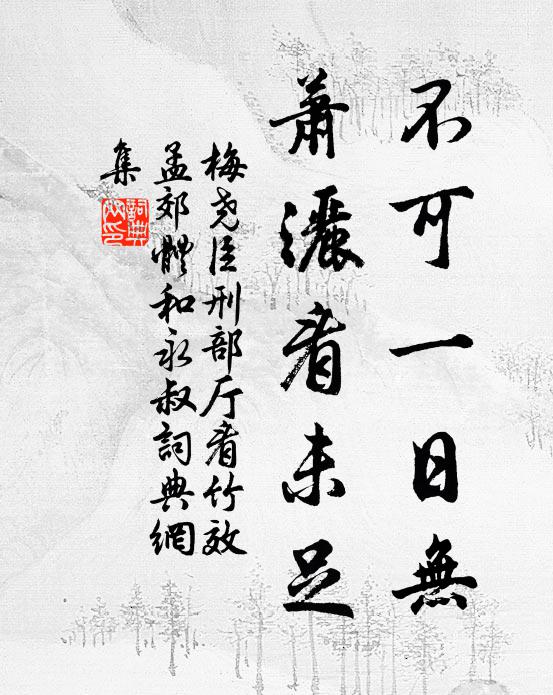 不可一日無
蕭灑看未足
梅堯臣刑部厅看竹效
孟郊體和永叔詞典網
集